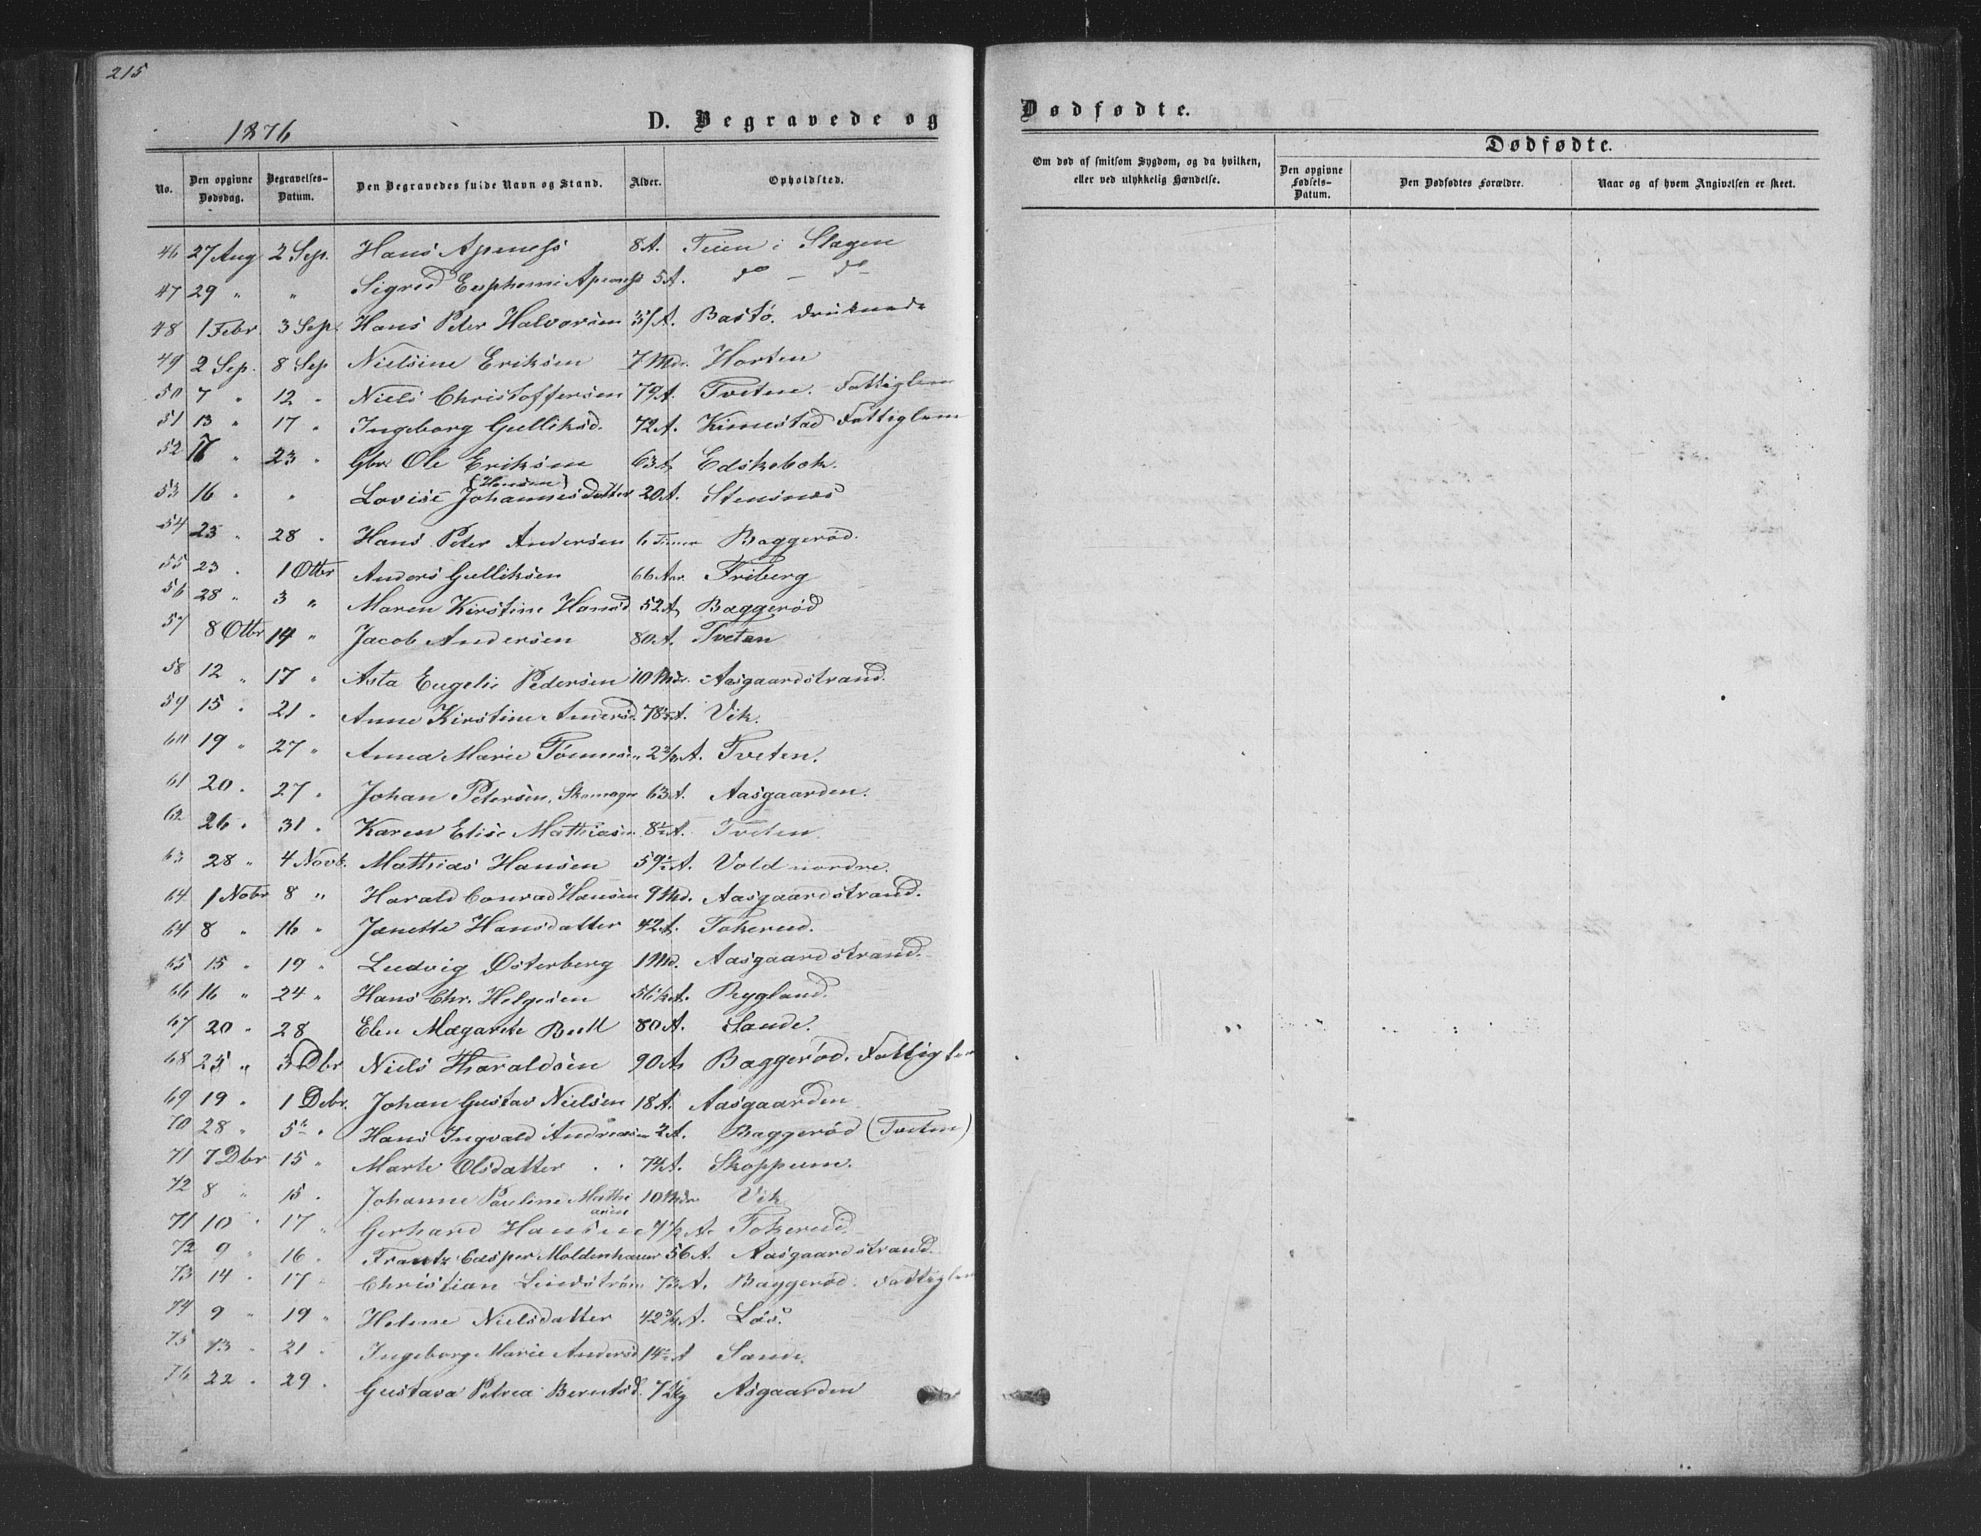 215
1876
D. Begravede og
No. Den opgivne Dødsdag. Begravelses-Datum. Den Begravedes fulde Navn og Stand. Alder. Opholdsted.
46 27 Aug 2 Sep. Hans Apeness 8 A. Teien i Slagen
47 29 " " Sigrid Apeness 5 A. do — do
48 1 Febr 3 Sep. Hans Peter Halvorsen A. Bastø. druknede
49 2 Sep. 8 Sep Nielsine Eriksen 7 Mdr. Horten
50 7 " 12 " Niels Christoffersen 79 A. Tveten. Fattiglem
51 13 " 17 " Ingeborg Gulliksd. 72 A. Fattiglem
52 " 23 " Gbr. Ole Eriksen 63 A Edskebek.
53 16 " " Lovise (Hansen) Johannesdatter 20 A. Stensnes
54 23 " 28 " Hans Peter Andersen 6 Timer Baggerød.
55 23 " 1 Otbr Anders Gulliksen 66 Aar. Friberg
56 28 " 3 " Maren Kirstine Hansd 52 A Baggerød
57 8 Otbr 14 " Jacob Andersen 80 A. Tvetan
58 12 " 17 " Asta Engelie Pedersen 10 Mdr. Aasgaardstrand.
59 15 " 21 " Anne Kirstine Andersd. 78½ A. Vik.
60 19 " 27 " Anna Marie A. Tveten.
61 20 " 27 " Johan Petersen, Skomager 63 A. Aasgaarden.
62 26 " 31 " Karen Elise Mathiasen 8½ A. Tveten.
63 28 " 4 Novb. Mathias Hansen 59½ A. Vold nordre.
64 1 Nobr 8 " Harald Conrad Hansen 9 Md. Aasgaardstrand.
64 8 " 16 " Janette Hansdatter 42 A. Tokerud.
65 15 " 19 " Ludvig Østerberg 1 Md. Aasgaardstrand.
66 16 " 24 " Hans Chr. Helgesen A. Rygland.
67 20 " 28 Elen Magarete Bull 80 A. Sande.
68 25 " 3 Dbr Niels Haraldsen 90 A Baggerød. Fattiglem
69 19 " 1 Debr. Johan Gustav Nielsen 18 A. Aasgaarden
70 28 " 5 " Hans Ingvald Andreasen 2 A. Baggerød (Tveten)
71 7 Dbr 15 " Marte Olsdatter 74 A. Skoppum.
72 8 " 15 " Johanne Pauline Mathiasen 10 Mdr Vik
71 10 " 17 " Gerhard Hansen A. Tokerud.
72 9 " 16 " Frantz Casper Moldenhauer 56 A. Aasgaardstrand.
73 14 " 17 " Christian Lindstrøm 73 A. Baggerød. Fattiglem
74 9 " 19 " Helene Nielsdatter 42¾ A. Løs.
75 13 " 21 " Ingeborg Marie Andersd 14½ A Sande.
76 22 " 29 " Gustava Petrea Berntsd. Asgaarden
Dødfødte.
Om død af smitsom Sygdom, og da hvilken, eller ved ulykkelig Hændelse.
Dødfødte.
Den opgivne Fødsels-Datum. Den Dødfødtes Forældre. Naar og af hvem Angivelsen er skeet.